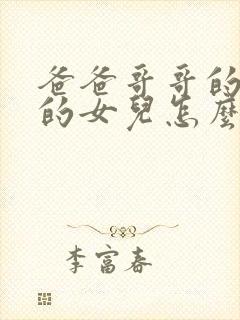 爸爸哥哥的
的女兒怎麼
李富春